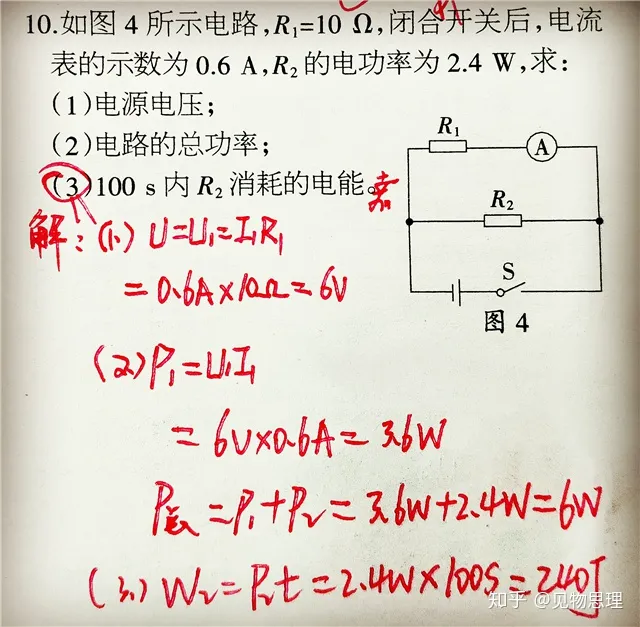 10.如图 4 所示电路,R₁=10 Ω,闭合开关后,电流
表的示数为 0.6 A,R₂ 的电功率为 2.4 W,求:
(1)电源电压;
(2)电路的总功率;
(3)100 s 内 R₂ 消耗的电能。
R₁
A
R₂
S
图 4
解:(1.) U=U₁=I₁R₁
=0.6A×10Ω=6V
(2.)P₁=U₁I₁
=6V×0.6A=3.6W
P总=P₁+P₂=3.6W+2.4W=6W
(3.)W₂=P₂t=2.4W×100S=240J
知乎 @见物思理